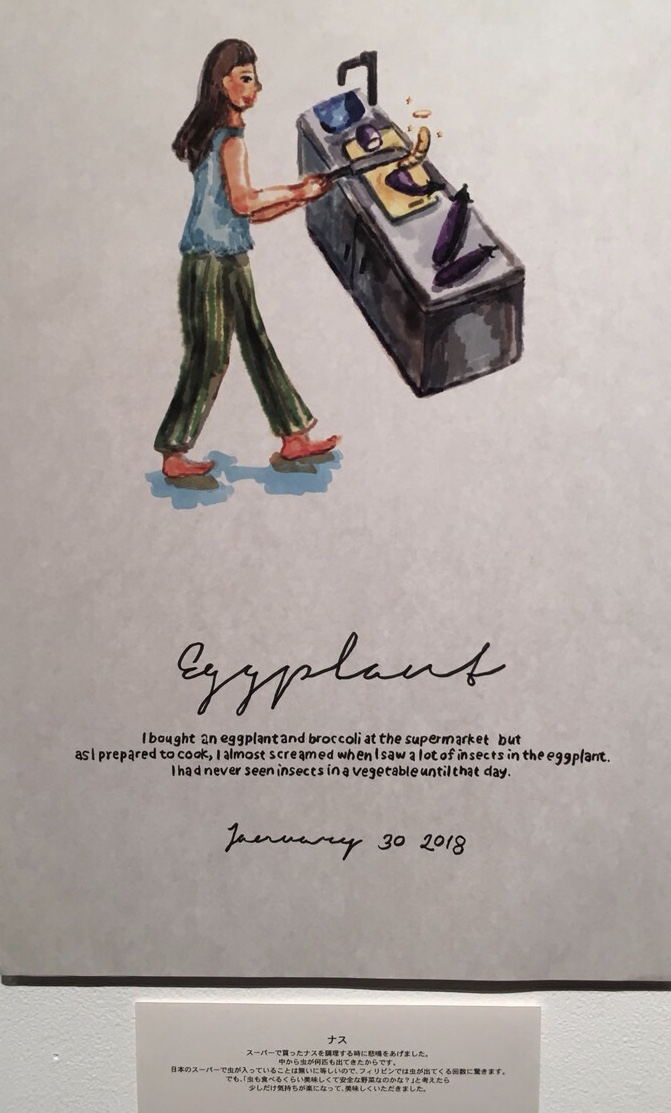 Eggplant
I bought an eggplant and broccoli at the supermarket but
as I prepared to cook, I almost screamed when I saw a lot of insects in the eggplant.
I had never seen insects in a vegetable until that day.
January 30 2018
ナス
スーパーで買ったナスを調理する時に悲鳴をあげました。
中から虫が何匹も出てきたからです。
日本のスーパーで虫が入っていることは無いに等しいので、フィリピンでは虫が出てくる回数に驚きます。
でも、「虫も食べるくらい美味しくて安全な野菜なのかな?」と考えたら
少しだけ気持ちが楽になって、美味しくいただきました。